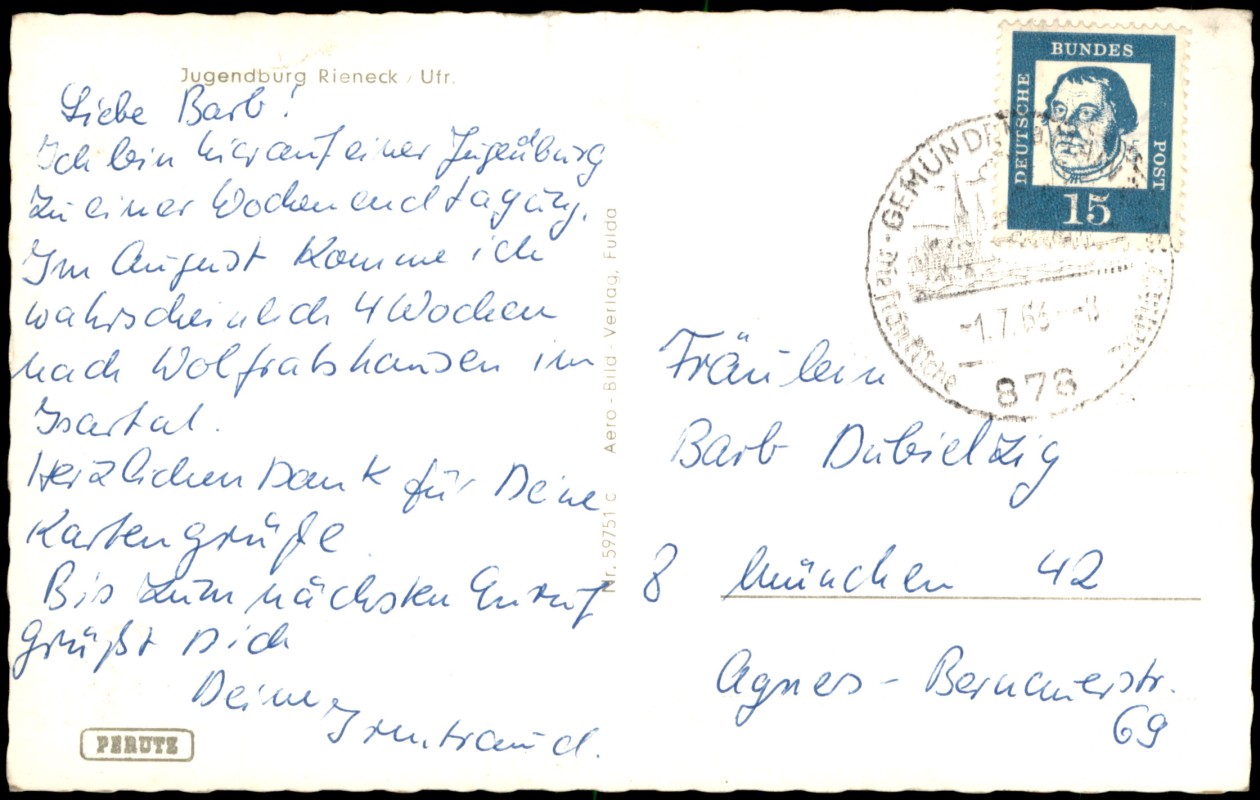 Jugendburg Rieneck / Ufr.
Liebe Barb!
Ich bin hier auf einer Jugendburg
zu einer Wochenendtagung.
Im August komme ich
wahrscheinlich 4 Wochen
nach Wolfratshausen im
Isartal.
Herzlichen Dank für Deine
Kartengrüße
Bis zum nächsten Anruf
grüßt Dich
Deine
Irmtraud.
PERUTZ
Nr. 59751 c Aero-Bild-Verlag, Fulda
DEUTSCHE
BUNDES
POST
15
GEMÜNDEN
Die fränkische
-1.7.63--8
878
Fräulein
Barb Dubielzig
8 München 42
Agnes-Bernauerstr.
69